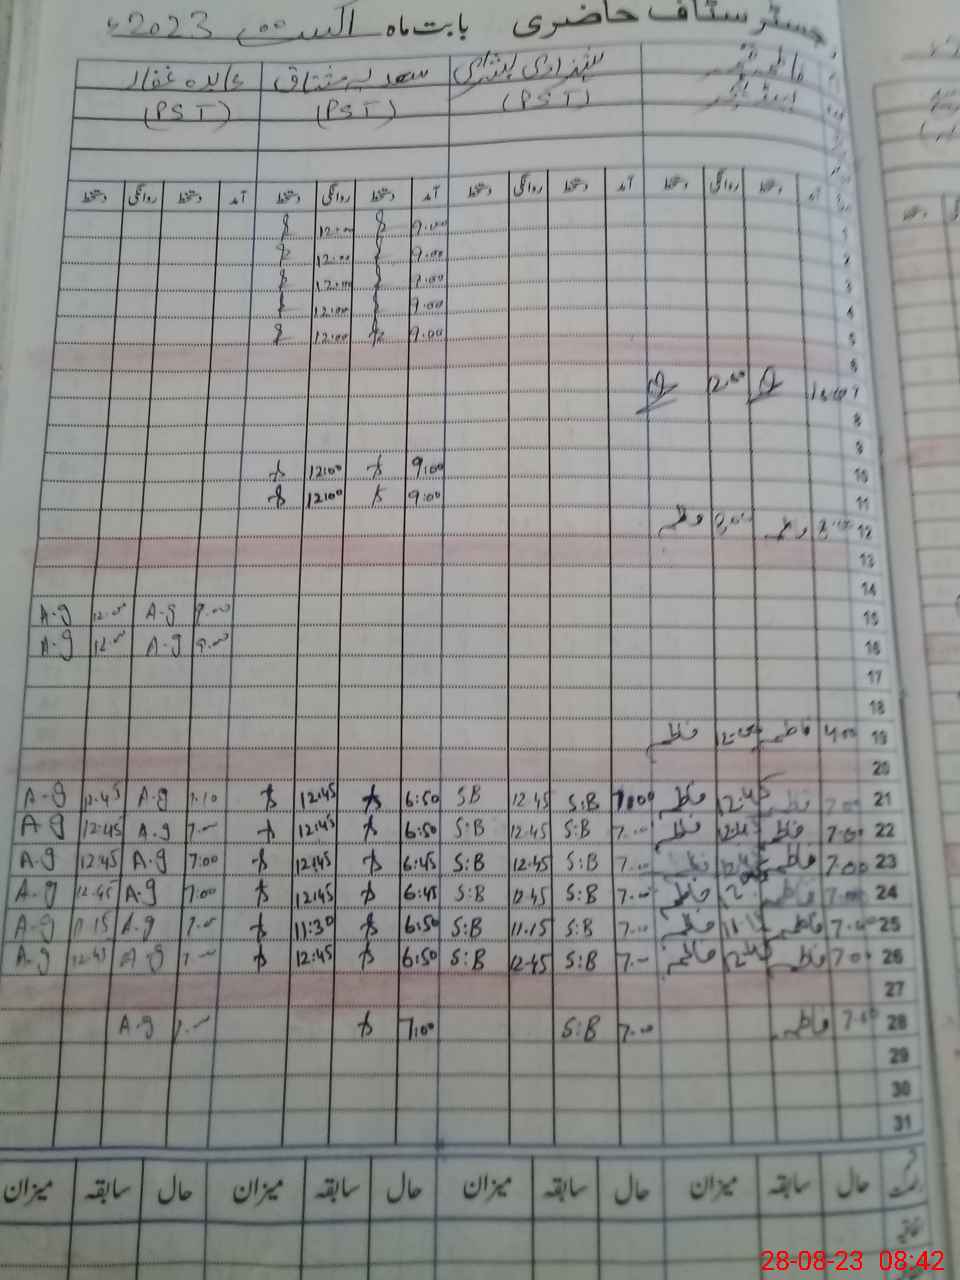 رجسٹر سٹاف حاضری بابت ماہ اگست 2023ء
فاطمہ شہزادی بشریٰ سعدیہ مشتاق عابدہ غفار
(PST) (PST) (PST)
آمد دستخط روانگی دستخط آمد دستخط روانگی دستخط آمد دستخط روانگی دستخط آمد دستخط روانگی دستخط
1 9.00 12.00
2 9.00 12.00
3 9.00 12.00
4 9.00 12.00
5 9.00 12.00
6
7
8
9
10 9:00 12:00
11 9:00 12:00
12
13
14
15 9.00 A.g 12.00 A.g
16 9.00 A.g 12.00 A.g
17
18
19 فاطمہ 12.00 فاطمہ
20
21 7.00 فاطمہ 12.45 فاطمہ 7.00 S:B 12.45 SB 6:50 12:45 7.10 A.g 12.45 A.g
22 7.00 فاطمہ 12.45 فاطمہ 7.00 S:B 12.45 S:B 6:50 12:45 7.00 A.g 12.45 A.g
23 7.00 فاطمہ 12.45 7.00 S:B 12.45 S:B 6:45 12:45 7:00 A.g 12.45 A.g
24 7.00 فاطمہ فاطمہ 7.00 S:B 12.45 S:B 6:45 12:45 7:00 A.g 12.45 A.g
25 7.00 فاطمہ 11.15 فاطمہ 7.00 S:B 11.15 S:B 6:50 11:30 7.00 A.g 11.15 A.g
26 7.00 فاطمہ 12.45 فاطمہ 7.00 S:B 12.45 S:B 6:50 12:45 7.00 A.g 12.45 A.g
27
28 7.00 فاطمہ 7.00 S:B 7:00 7.00 A.g
29
30
31
حال سابقہ میزان حال سابقہ میزان حال سابقہ میزان حال سابقہ میزان
28-08-23 08:42